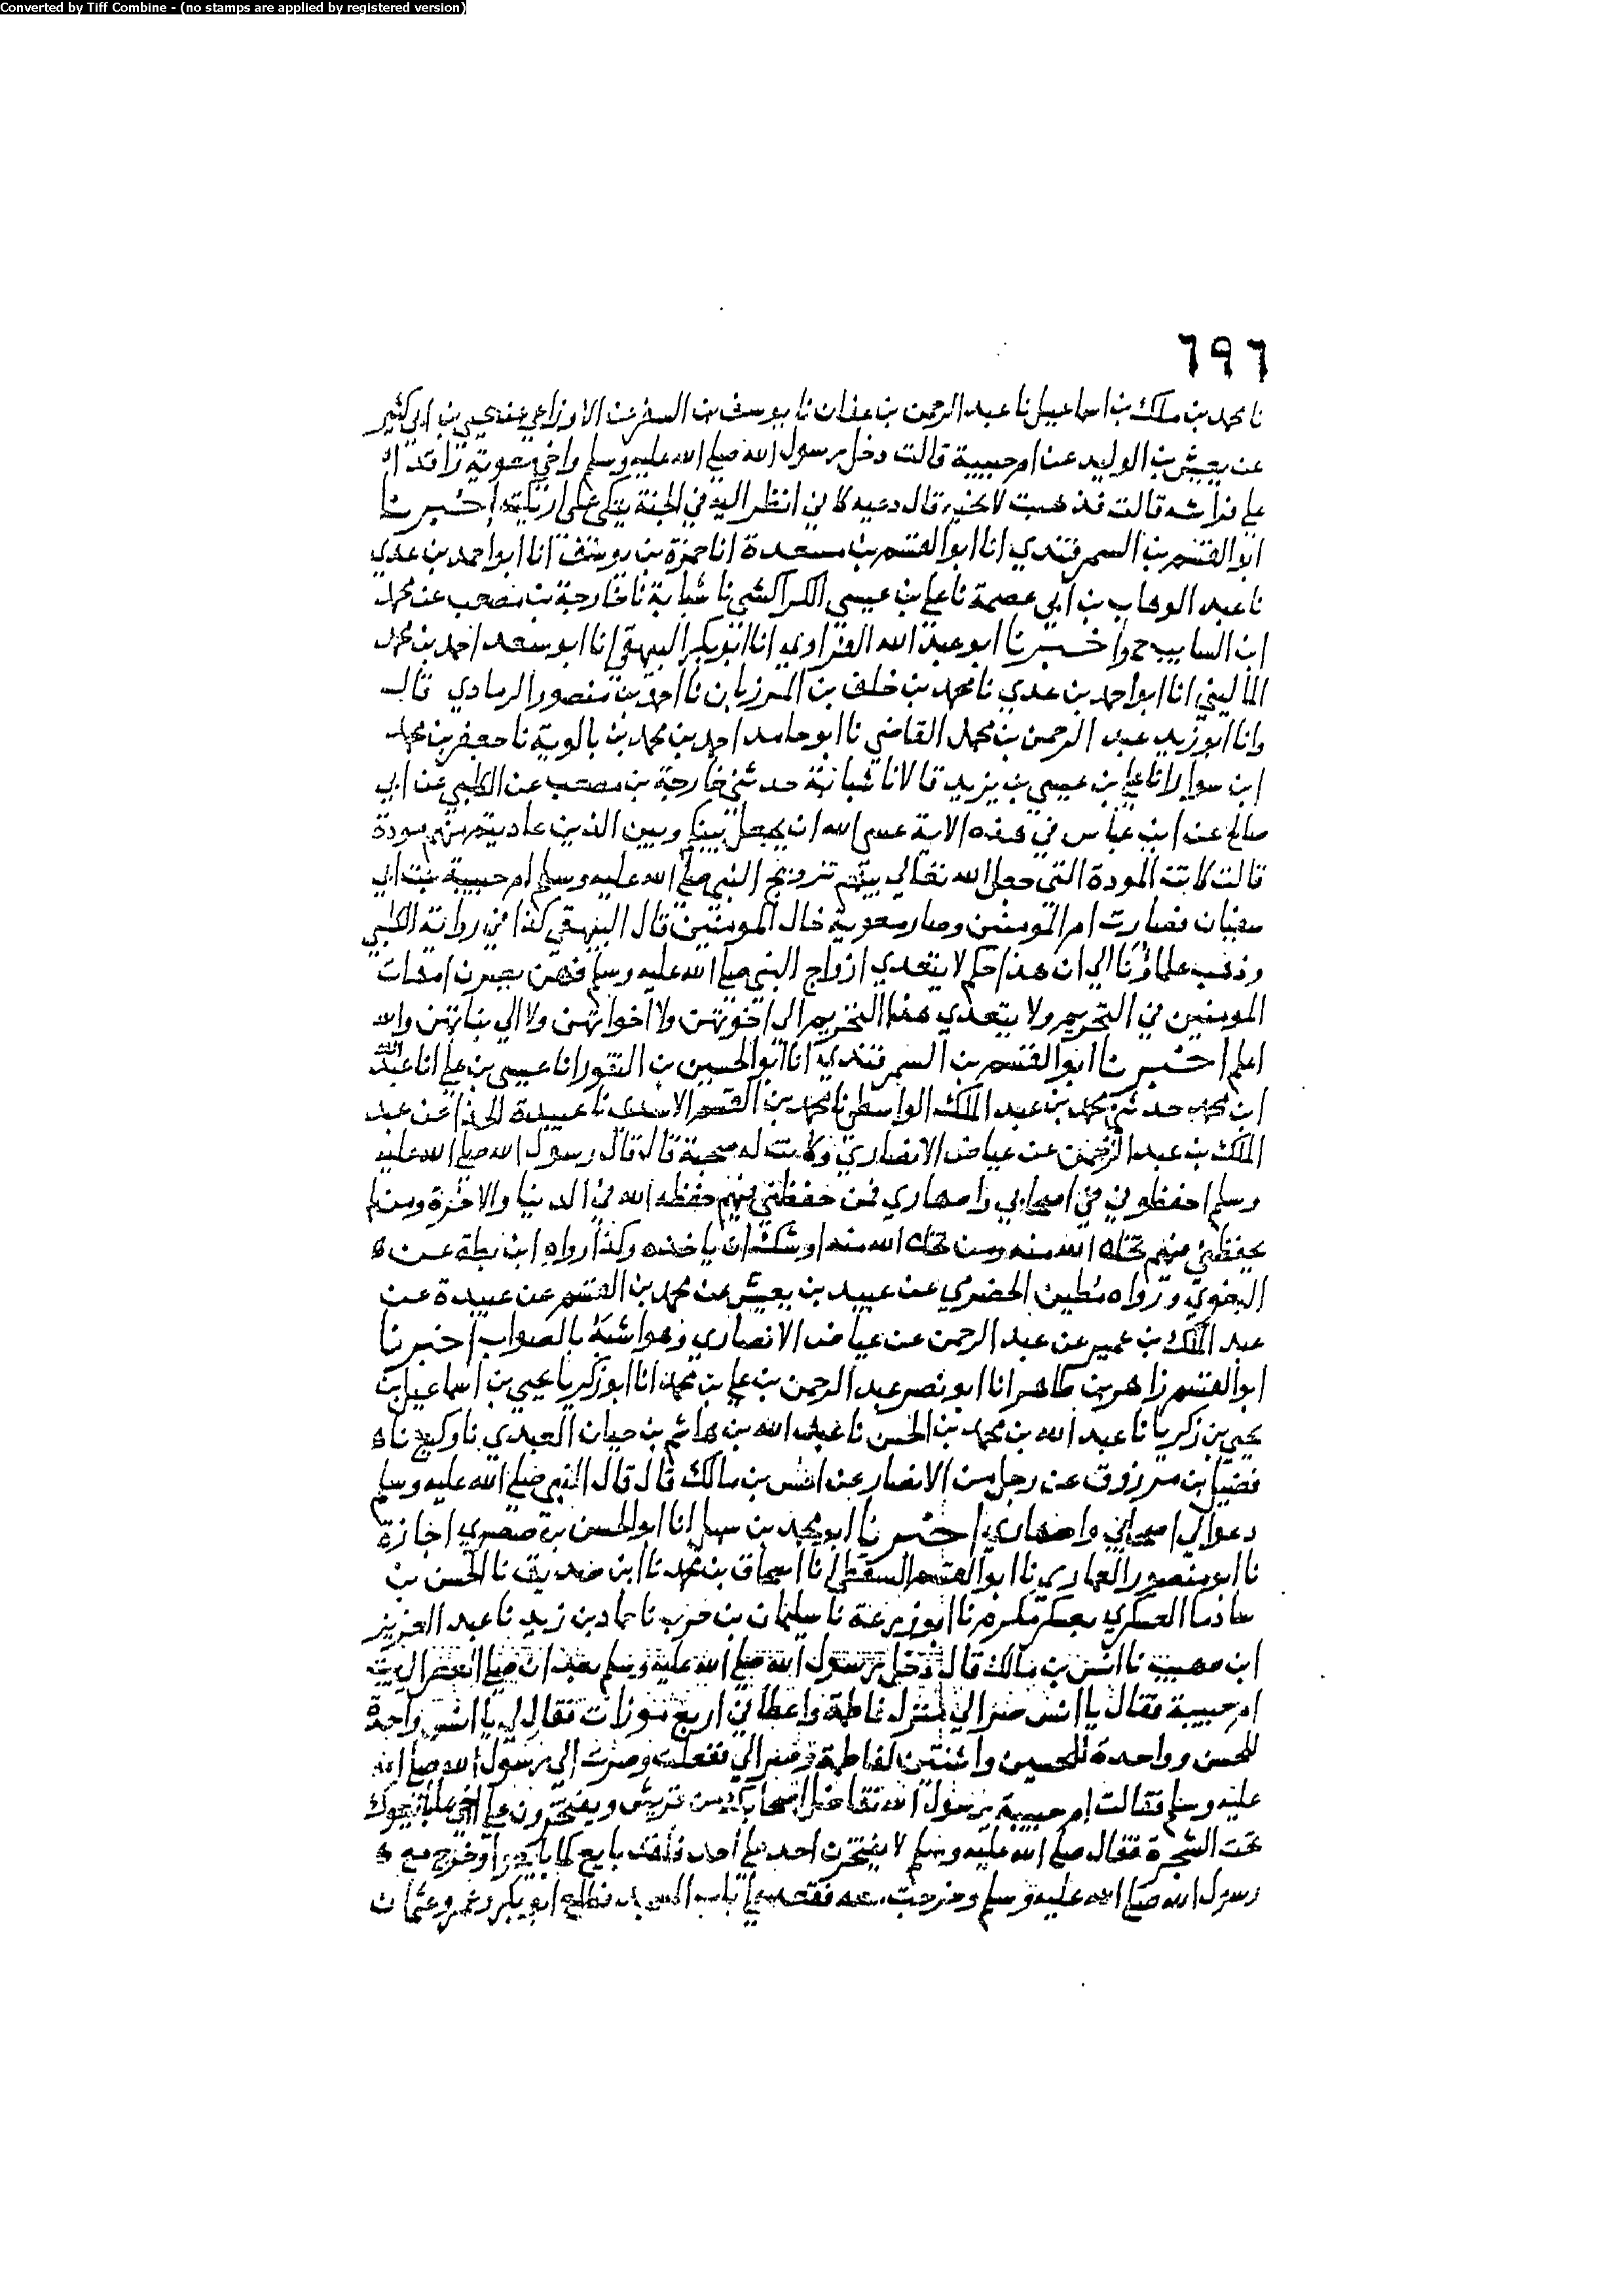 Converted by Tiff Combine - (no stamps are applied by registered version)
٦٩٦
نا محمد بن ملك بن اسماعيل نا عبد الرحمن بن عفان نا يوسف بن السفر عن الاوزاعي عن يحيى بن ابي كثير
عن يعيش بن الوليد عن ام حبيبة قالت دخل رسول الله صلى الله عليه وسلم واخي معوية راقدا
على فراشه قالت فذهبت لانحيه قال دعيه كاني انظر اليه في الجنة يتكي على اريكته اخبرنا
ابو القسم بن السمرقندي انا ابو القسم بن مسعدة انا حمزة بن يوسف انا ابو احمد بن عدي
نا عبد الوهاب بن ابي عصمة نا علي بن عيسى الكراكشي نا شبابة نا خارجة بن مصعب عن محمد
ابن السايب ح واخبرنا ابو عبد الله الفراوي انا ابو بكر البيهقي انا ابو سعد احمد بن محمد
الماليني انا ابو احمد بن عدي نا محمد بن خلف بن المرزبان نا احمد بن منصور الرمادي قال
وانا ابو زيد عبد الرحمن بن محمد القاضي نا ابو حامد احمد بن محمد بن بالوية نا جعفر بن محمد
ابن سوار انا علي بن عيسى بن يزيد قالا نا شبابة حدثني خارجة بن مصعب عن الكلبي عن ابي
صالح عن ابن عباس في هذه الاية عسى الله ان يجعل بينكم وبين الذين عاديتم منهم مودة
قالت كانت المودة التي جعل الله تعالى بينهم تزويج النبي صلى الله عليه وسلم ام حبيبة بنت ابي
سفيان فصارت ام المومنين وصار معوية خال المومنين قال البيهقي كذا في رواية الكلبي
وذهب علماؤنا الى ان هذا حكم لا يتعدى ازواج النبي صلى الله عليه وسلم فهن يصرن امهات
المومنين في التحريم ولا يتعدى هذا التحريم الى اخوتهن ولا اخواتهن ولا الى بناتهن والله
اعلم اخبرنا ابو القسم بن السمرقندي انا ابو الحسين بن النقور انا عيسى بن علي انا عبد الله
ابن محمد حدثني محمد بن عبد الملك الواسطي نا محمد بن القسم الاسدي نا عبيدة الحذا عن عبد
الملك بن عبد الرحمن عن عياض الانصاري وكانت له صحبة قال قال رسول الله صلى الله عليه
وسلم احفظوني في اصحابي واصهاري فمن حفظني فيهم حفظه الله في الدنيا والاخرة ومن لم
يحفظني فيهم تخلى الله منه ومن تخلى الله منه اوشك ان ياخذه وكذا رواه ابن بطة عن ه
البغوي ورواه مطين الحضرمي عن عبيد بن يعيش عن محمد بن القسم عن عبيدة عن
عبد الملك بن عمير عن عبد الرحمن عن عياض الانصاري وهو اشبه بالصواب اخبرنا
ابو القسم زاهر بن طاهر انا ابو نصر عبد الرحمن بن علي بن محمد انا ابو زكريا يحيى بن اسماعيل بن
يحيى بن زكريا نا عبد الله بن محمد بن الحسن نا عبد الله بن هاشم بن حيان العبدي نا وكيع نا ه
فضيل بن مرزوق عن رجل من الانصار عن انس بن مالك قال قال النبي صلى الله عليه وسلم
دعوا لي اصحابي واصهاري اخبرنا ابو محمد بن سهل انا ابو الحسن بن صصري اجازة
نا ابو منصور العماري نا ابو القسم السقطي نا اسحاق بن محمد نا ابن صديق نا الحسن بن
العسكري بعسكر مكرم نا ابو زرعة نا سليمان بن حرب نا حماد بن زيد نا عبد العزيز
ابن صهيب نا انس بن مالك قال دخل رسول الله صلى الله عليه وسلم بعد ان صلى العصر الى بيت
ام حبيبة فقال يا انس صر الى منزل فاطمة واعطاني اربع موزات فقال لي يا انس واحدة
للحسن وواحدة للحسين واثنتين لفاطمة وصر الي ففعلت وصرت الى رسول الله صلى الله
عليه وسلم فقالت ام حبيبة يرسول الله تفاضل اصحابك من قريش ويفتخرون على اخي بما بايعوك
تحت الشجرة فقال صلى الله عليه وسلم لا يفتخرن احد على احد فلقد بايع كما بايعوا وخرج مع ه
رسول الله صلى الله عليه وسلم وخرجت معه فقعد على باب فطلع ابو بكر وعمر وعثمان